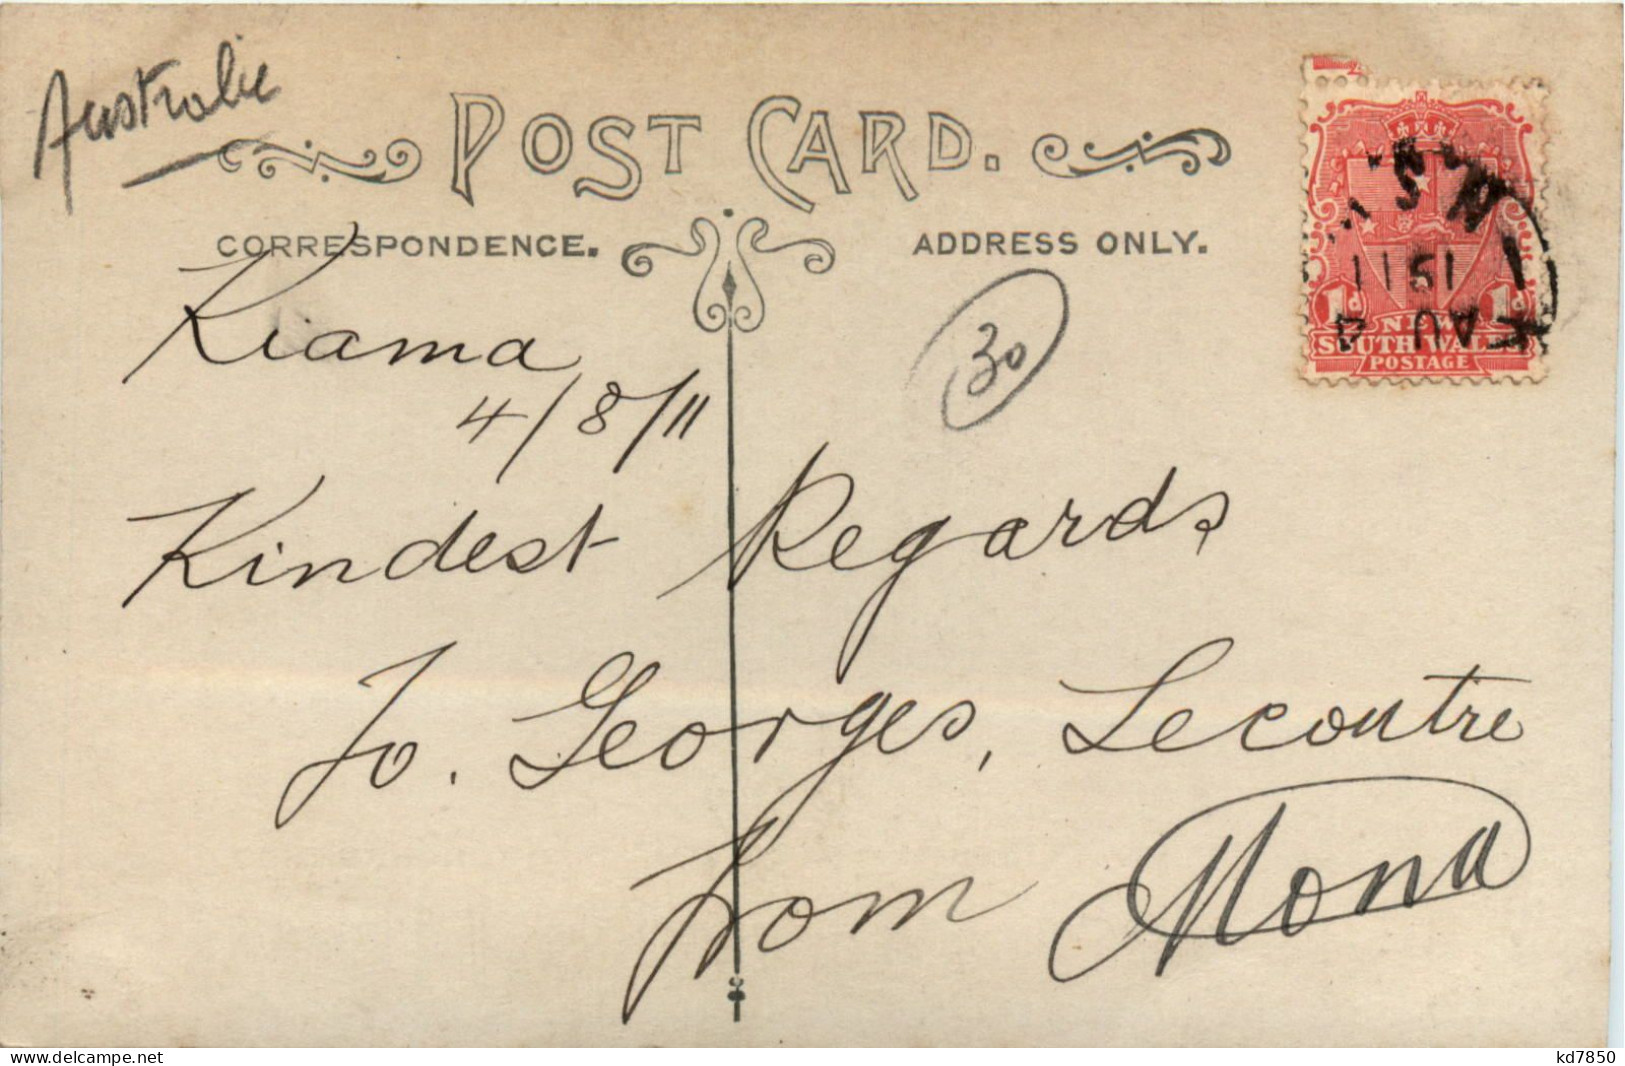 Australie
POST CARD.
CORRESPONDENCE.
ADDRESS ONLY.
Kiama
4/8/11
30
Kindest Regards
To. Georges, Lecoutre
from Mona
N.S.
1911
AU 4
1d 1d
NEW
SOUTH WALES
POSTAGE
delcampe.net
kd7850